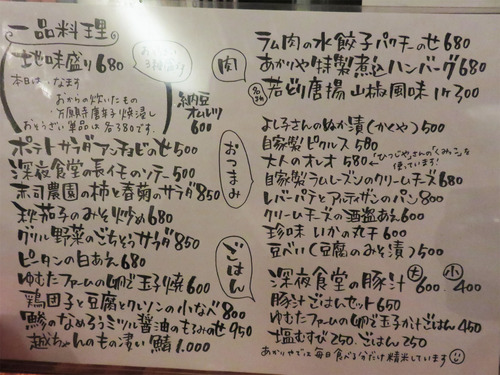 一品料理
地味盛り 680
おばんざい3種盛り
本日は、なます
おからの炊いたもの
万願寺唐辛子焼浸し
おそうざい単品は各380です。
納豆オムレツ 600
ポテトサラダアンチョビのせ 500
深夜食堂の長イモのソテー 550
赤司農園の柿と春菊のサラダ 850
秋茄子のみそ炒め 680
グリル野菜のごちそうサラダ 850
ピータンの白あえ 680
ゆむたファームの卵で玉子焼 600
鶏団子と豆腐とクレソンの小なべ 800
鯵のなめろうミツル醤油のもろみのせ 950
越ちゃんのもの凄い鯖 1.000
肉
ラム肉の水餃子パクチーのせ 680
あかりや特製煮込ハンバーグ 680
名物
若どり唐揚 山椒風味 1ケ 300
おつまみ
よし子さんのぬか漬(かくや) 500
自家製ピクルス 580
大人のオレオ 580 ←ひつじやさんの「くみこ」を使っています!
自家製ラムレーズンのクリームチーズ 680
レバーパテとアルティザンのパン 800
クリームチーズの酒盗あえ 600
珍味 いかの丸干 600
豆べい(豆腐のみそ漬) 550
ごはん
深夜食堂の豚汁 大 600 小 400
豚汁ごはんセット 650
ゆむたファームの卵で玉子かけごはん 450
塩むすび 250 ごはん 250
あかりやでは毎日食べる分だけ精米しています